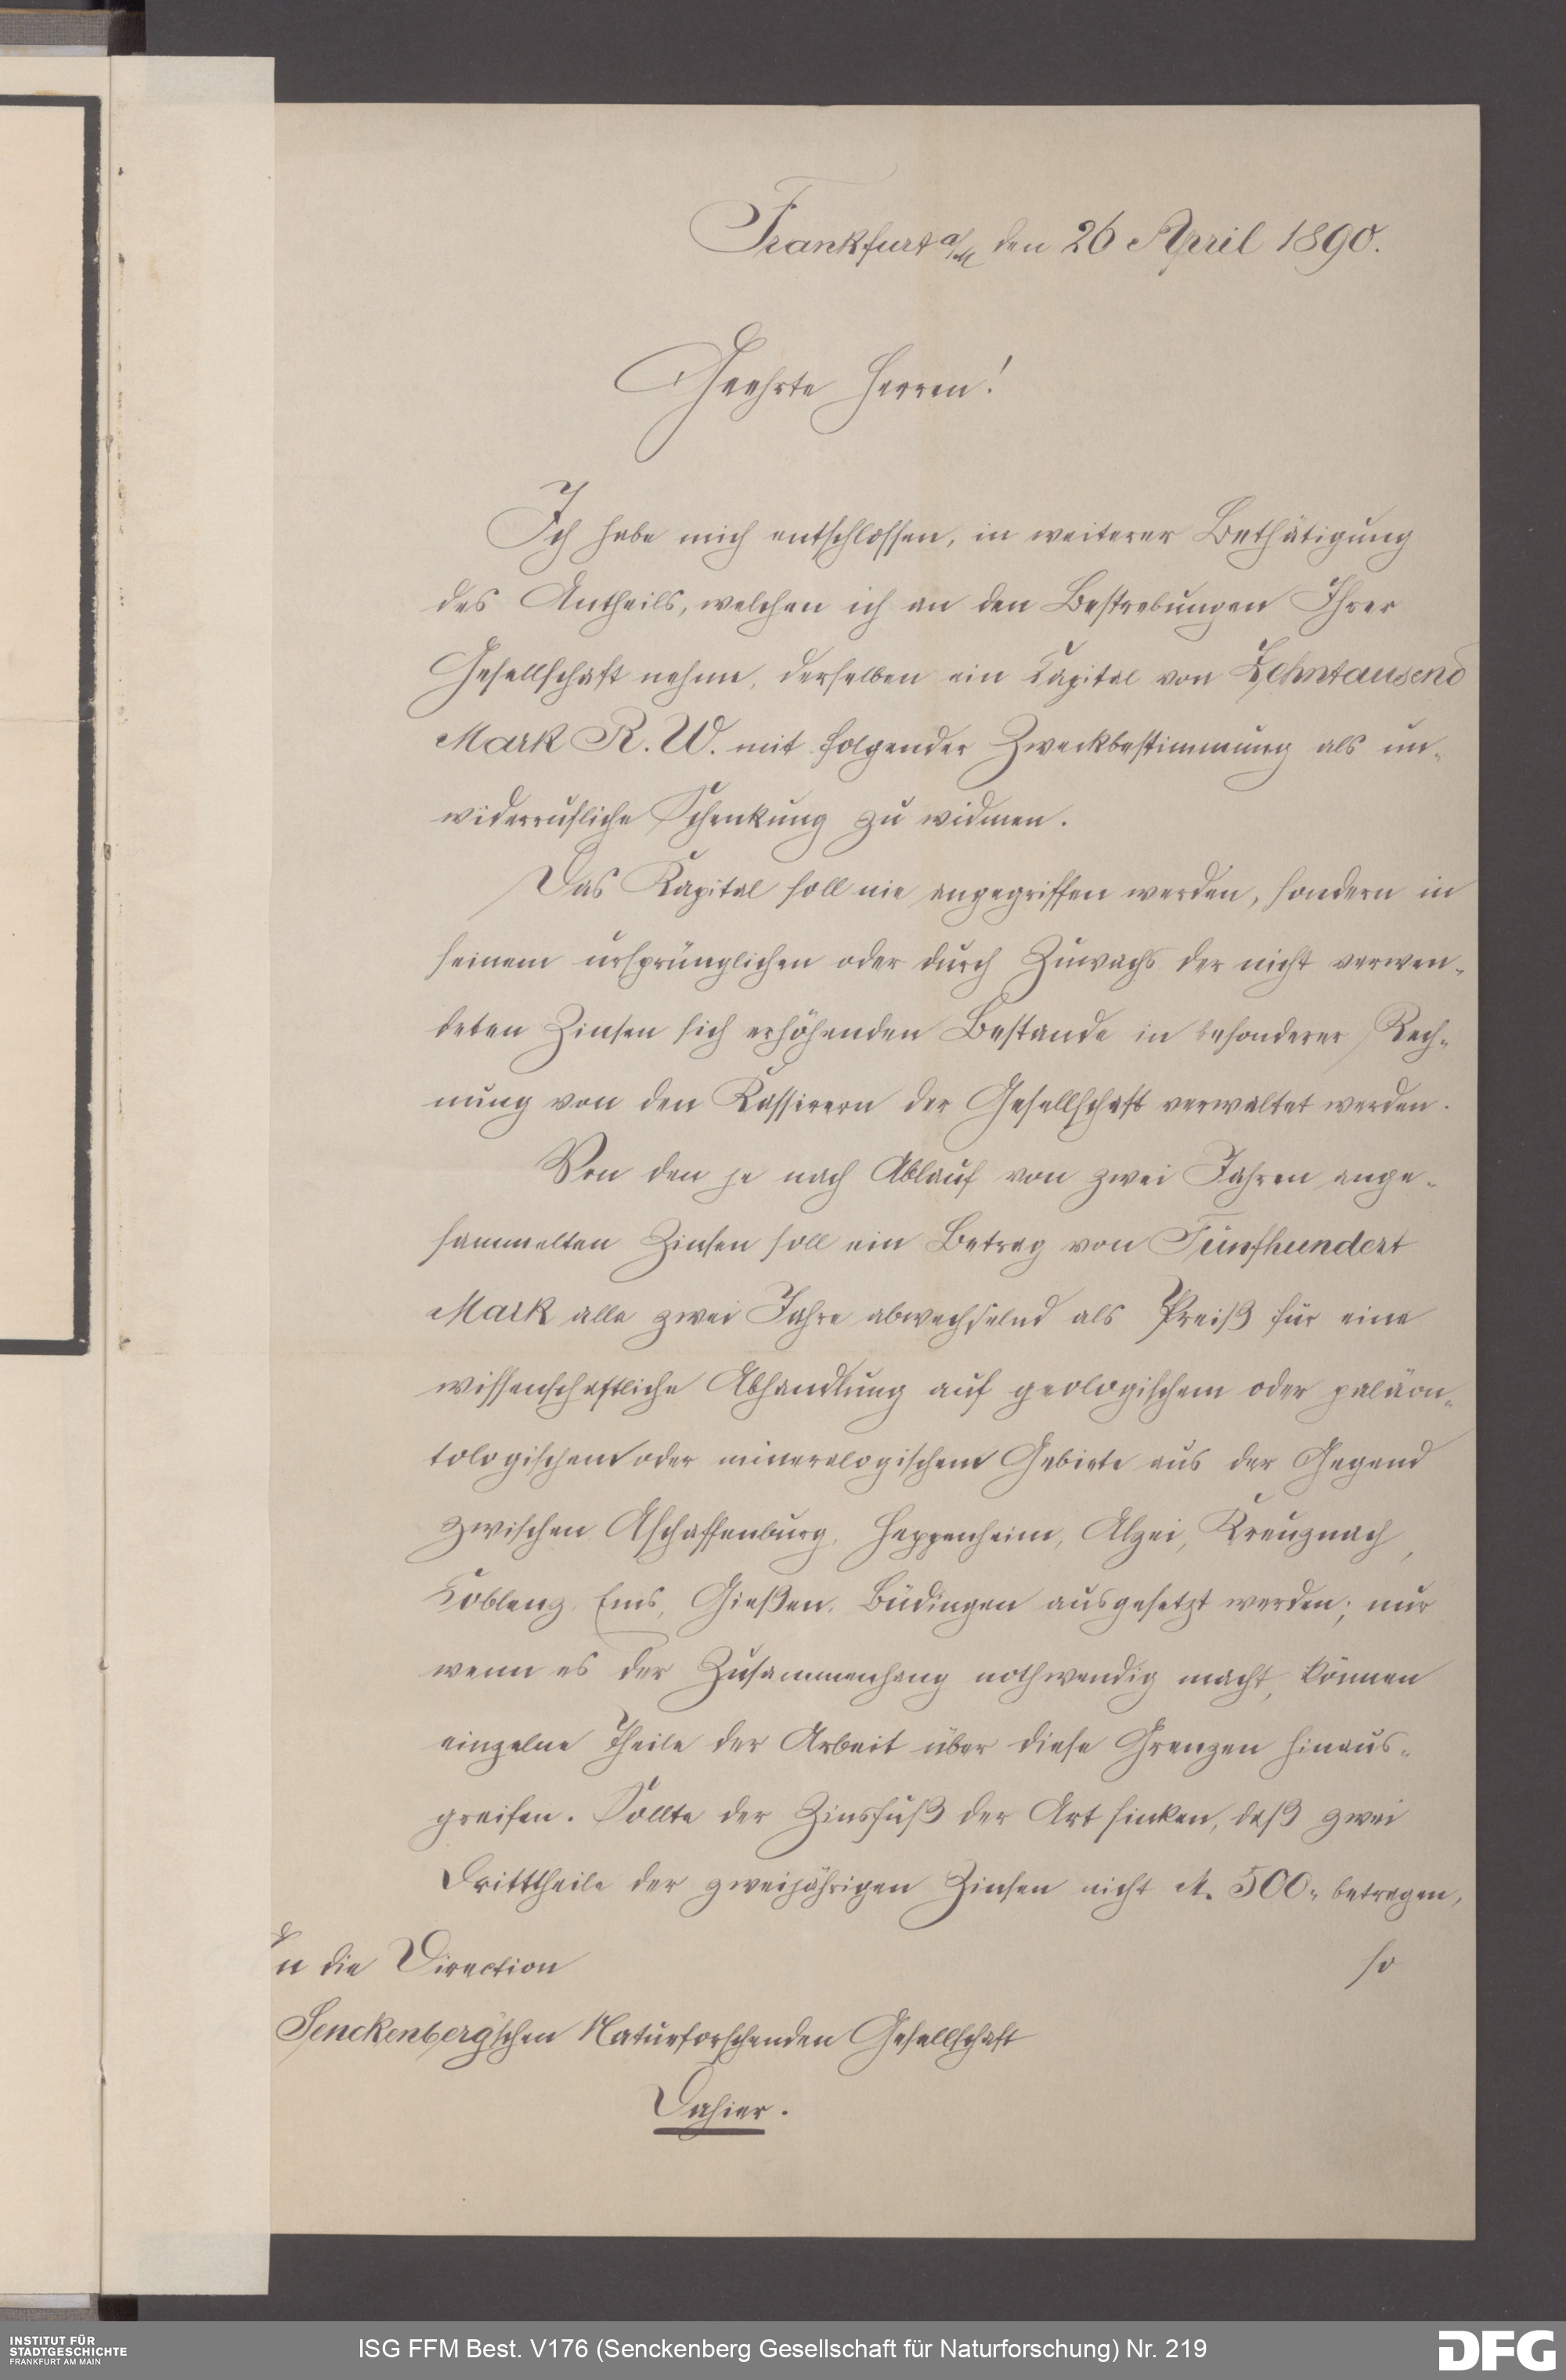 Frankfurt a/M den 26 April 1890.
Geehrte Herren!
Ich habe mich entschlossen, in weiterer Bethätigung
des Antheils, welchen ich an den Bestrebungen Ihrer
Gesellschaft nehme, derselben ein Capital von Zehntausend
Mark R. W. mit folgender Zweckbestimmung als un-
widerrufliche Schenkung zu widmen.
Das Kapital soll nie angegriffen werden, sondern in
seinem ursprünglichen oder durch Zuwachs der nicht verwen-
deten Zinsen sich erhöhenden Bestande in besonderer Rech-
nung von den Kassirern der Gesellschaft verwaltet werden.
Von den je nach Ablauf von zwei Jahren ange-
sammelten Zinsen soll ein Betrag von Fünfhundert
Mark alle zwei Jahre abwechselnd als Preiß für eine
wissenschaftliche Abhandlung auf geologischem oder paläon-
tologischem oder mineralogischem Gebiete aus der Gegend
zwischen Aschaffenburg, Heppenheim, Alzei, Kreuznach,
Coblenz, Ems, Gießen, Büdingen ausgesetzt werden; nur
wenn es der Zusammenhang nothwendig macht, können
einzelne Theile der Arbeit über diese Grenzen hinaus-
greifen. Sollte der Zinsfuß der Art sinken, daß zwei
Dritttheile der zweijährigen Zinsen nicht M. 500,, betragen,
so
An die Direction
Senckenberg'schen Naturforschenden Gesellschaft
Dahier.
INSTITUT FÜR
STADTGESCHICHTE
FRANKFURT AM MAIN
ISG FFM Best. V176 (Senckenberg Gesellschaft für Naturforschung) Nr. 219
DFG